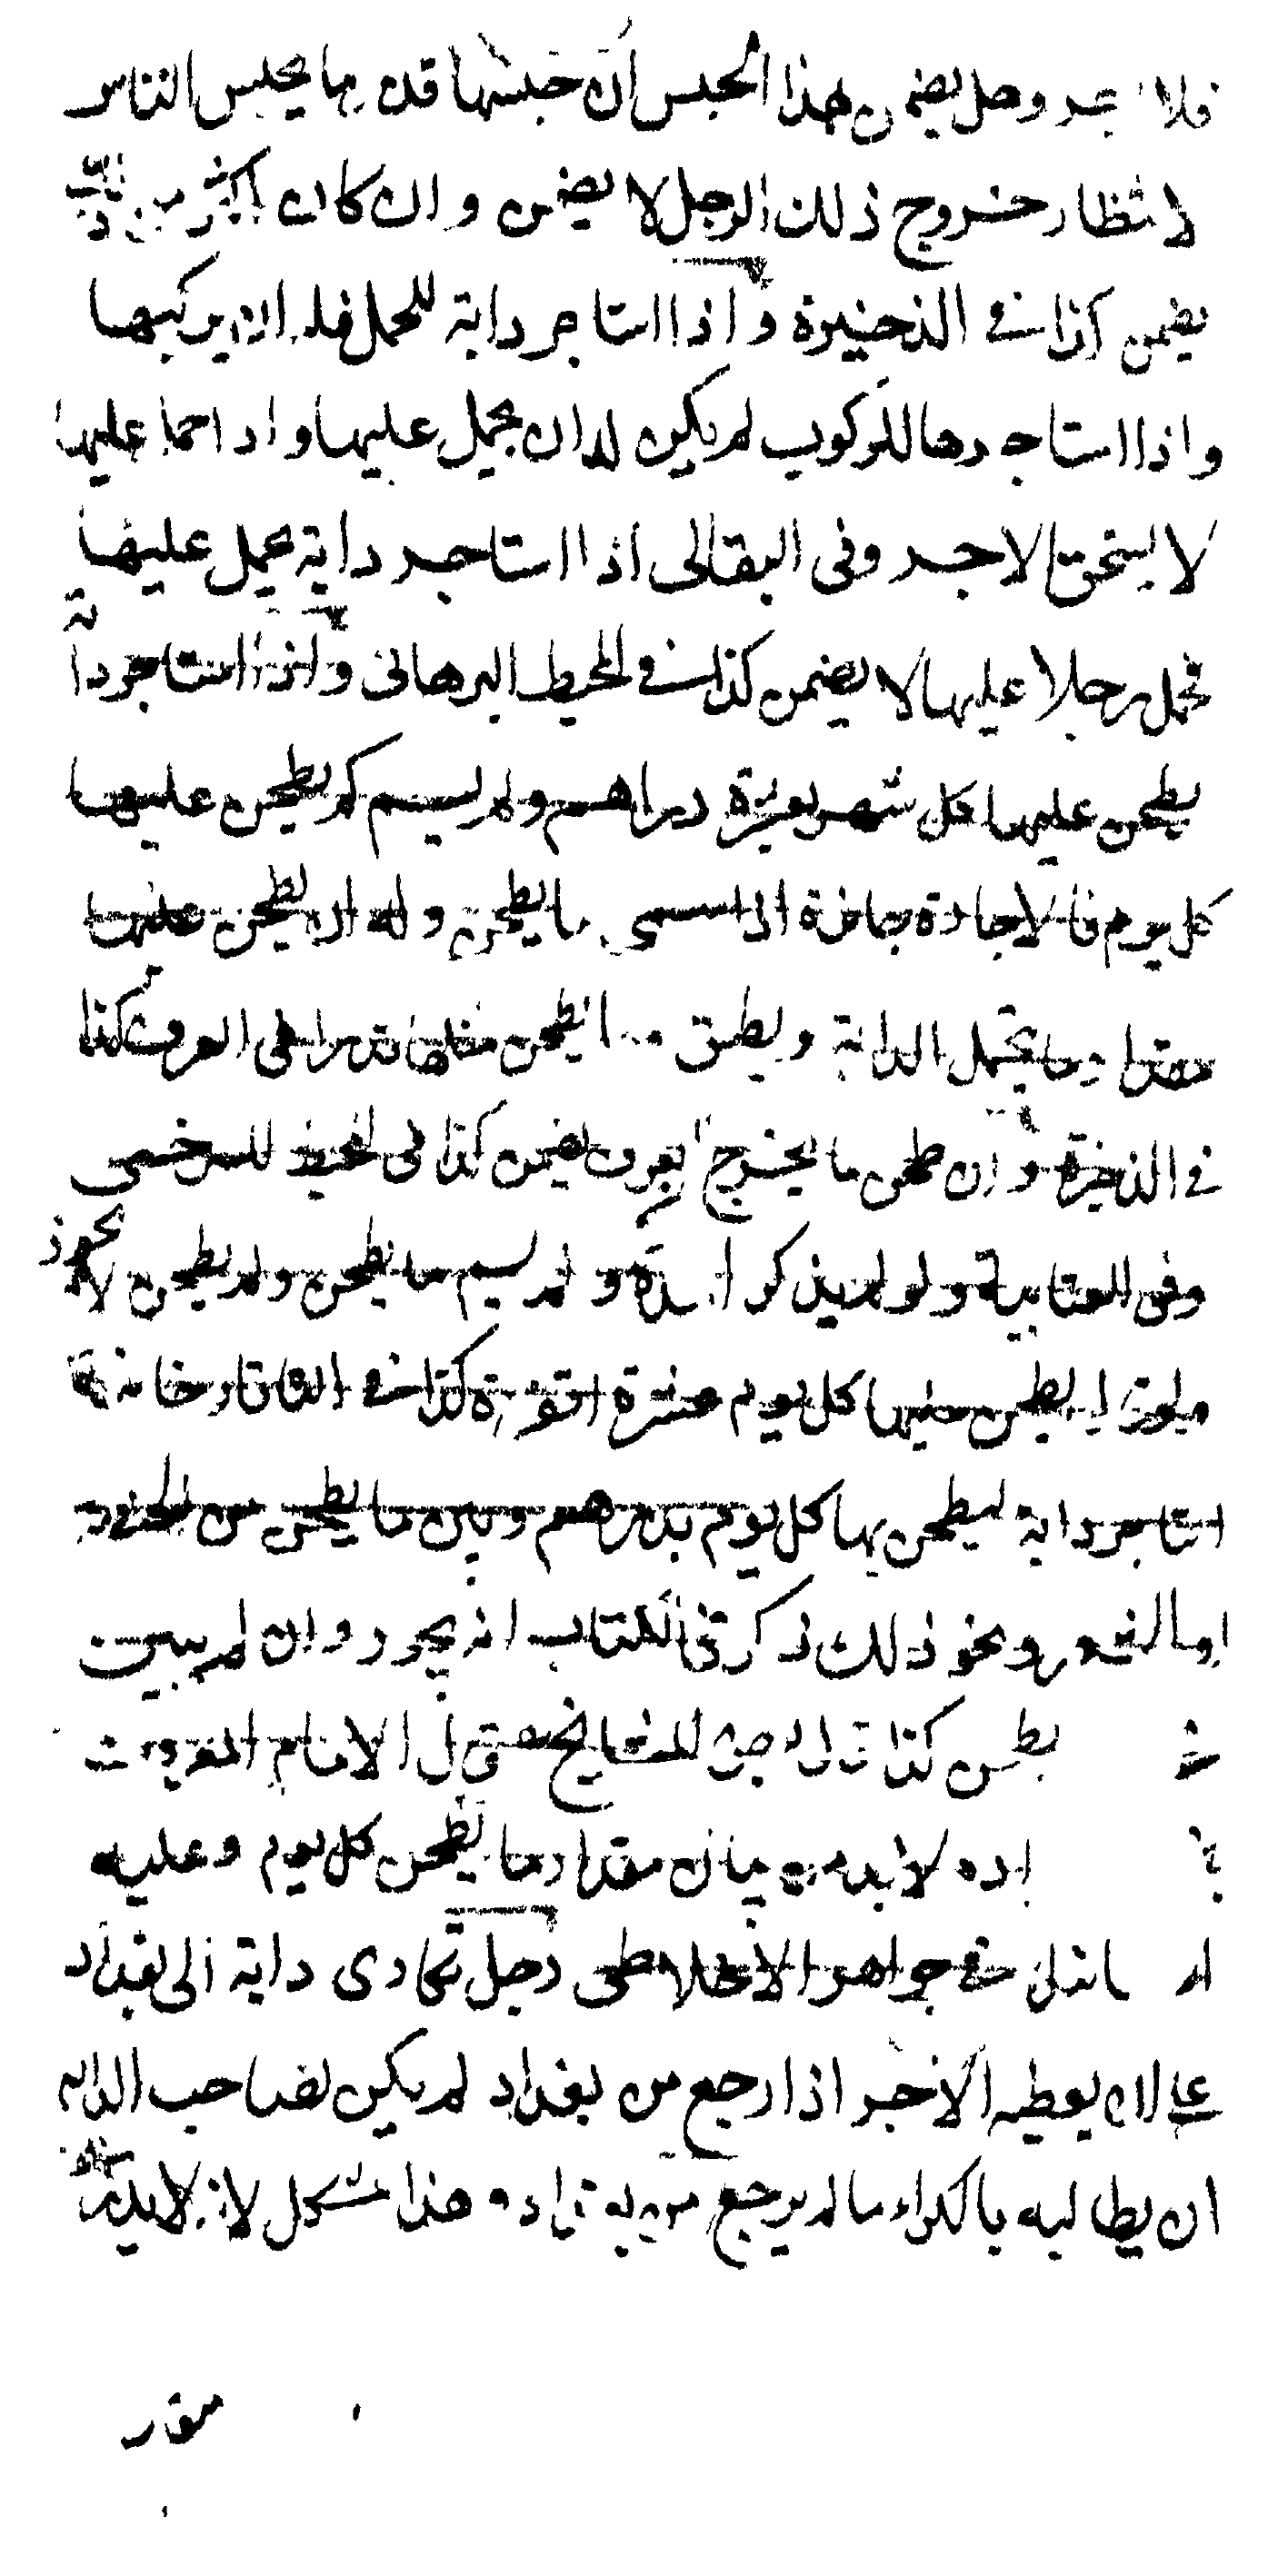 فلا اجر وهل يضمن هذا الحبس ان حبسها قدر ما يحبس الناس
لانتظار خروج ذلك الرجل لا يضمن وان كان اكثر من ذلك
يضمن كذا في الذخيرة واذا استاجر دابة للحمل فله ان يركبها
واذا استاجرها للركوب لم يكن له ان يحمل عليها واذا حمل عليها
لا يستحق الاجر وفى البقالى اذا استاجر دابة يحمل عليها
فحمل رجلا عليها لا يضمن كذا في المحيط البرهانى واذا استاجر دابة
يطحن عليها كل شهر بعشرة دراهم ولم يسم كم يطحن عليها
كل يوم فالاجارة جائزة اذا سمى ما يطحن وله ان يطحن عليها
مقدار ما يحتمل الدابة ويطيق ما يطحن مثلها قدرا فى العرف كذا
في الذخيرة وان طحن ما يخرج العرف يضمن كذا فى المحيط للسرخسى
وفى العتابية ولو لم يذكر المدة ولم يسم ما يطحن ولم يطحن لا يجوز
ليطحن عليها كل يوم عشرة اقفزة كذا في التاتارخانية
استاجر دابة ليطحن بها كل يوم بدرهم وبين ما يطحن من الحنطة
او الشعير ونحو ذلك ذكر في الكتاب انه يجوز وان لم يبين
يطحن كذا قال بعض المشايخ وقال الامام المعروف
انه لا بد من بيان مقدار ما يطحن كل يوم وعليه
في جواهر الاخلاطى رجل تكارى دابة الى بغداد
على ان يعطيه الاجر اذا رجع من بغداد لم يكن لصاحب الدابة
ان يطالبه بالكراء ما لم يرجع من بغداد وهذا مشكل لانه لا يدرى